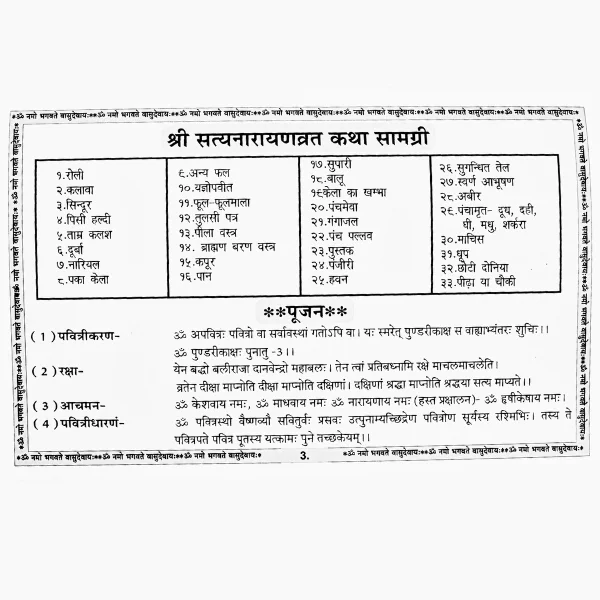 *ॐ नमो भगवते वासुदेवायः**ॐ नमो भगवते वासुदेवायः**ॐ नमो भगवते वासुदेवायः**ॐ नमो भगवते वासुदेवायः**ॐ नमो भगवते वासुदेवायः**ॐ नमो भगवते वासुदेवायः*
श्री सत्यनारायणव्रत कथा सामग्री
१.रोली
२.कलावा
३.सिन्दूर
४.पिसी हल्दी
५.ताम्र कलश
६.दूर्बा
७.नारियल
८.पका केला
९.अन्य फल
१०.यज्ञोपवीत
११.फूल-फूलमाला
१२.तुलसी पत्र
१३.पीला वस्त्र
१४. ब्राह्मण बरण वस्त्र
१५.कपूर
१६.पान
१७.सुपारी
१८.बालू
१९केला का खम्भा
२०.पंचमेवा
२१.गंगाजल
२२.पंच पल्लव
२३.पुस्तक
२४.पंजीरी
२५.हवन
२६.सुगन्धित तेल
२७.स्वर्ण आभूषण
२८.अबीर
२९.पंचामृत- दूध, दही,
घी, मधु, शर्करा
३०.माचिस
३१.धूप
३२.छोटी दोनिया
३३.पीढ़ा या चौकी
**पूजन**
( 1 ) पवित्रीकरण- ॐ अपवित्रः पवित्रो वा सर्वावस्थां गतोऽपि वा। यः स्मरेत् पुण्डरीकाक्ष स वाह्याभ्यंतरः शुचिः।।
ॐ पुण्डरीकाक्षः पुनातु -3।।
( 2 ) रक्षा- येन बद्धो बलीराजा दानवेन्द्रो महाबलः। तेन त्वां प्रतिबध्नामि रक्षे माचलमाचलेति।
व्रतेन दीक्षा माप्नोति दीक्षा माप्नोति दक्षिणां। दक्षिणां श्रद्धा माप्नोति श्रद्धया सत्य माप्यते।।
( 3 ) आचमन- ॐ केशवाय नमः, ॐ माधवाय नमः ॐ नारायणाय नमः (हस्त प्रक्षालन)- ॐ हृषीकेषाय नमः।
( 4 ) पवित्रीधारणं- ॐ पवित्रस्थो वैष्णव्यौ सवितुर्वः प्रसवः उत्पुनाम्यच्छिद्रेण पवित्रोण सूर्यस्य रश्मिभिः। तस्य ते
पवित्रपते पवित्र पूतस्य यत्कामः पुने तच्छकेयम्।।
*ॐ नमो भगवते वासुदेवायः**ॐ नमो भगवते वासुदेवायः**ॐ नमो भगवते वासुदेवायः* 3. *ॐ नमो भगवते वासुदेवायः**ॐ नमो भगवते वासुदेवायः**ॐ नमो भगवते वासुदेवायः*